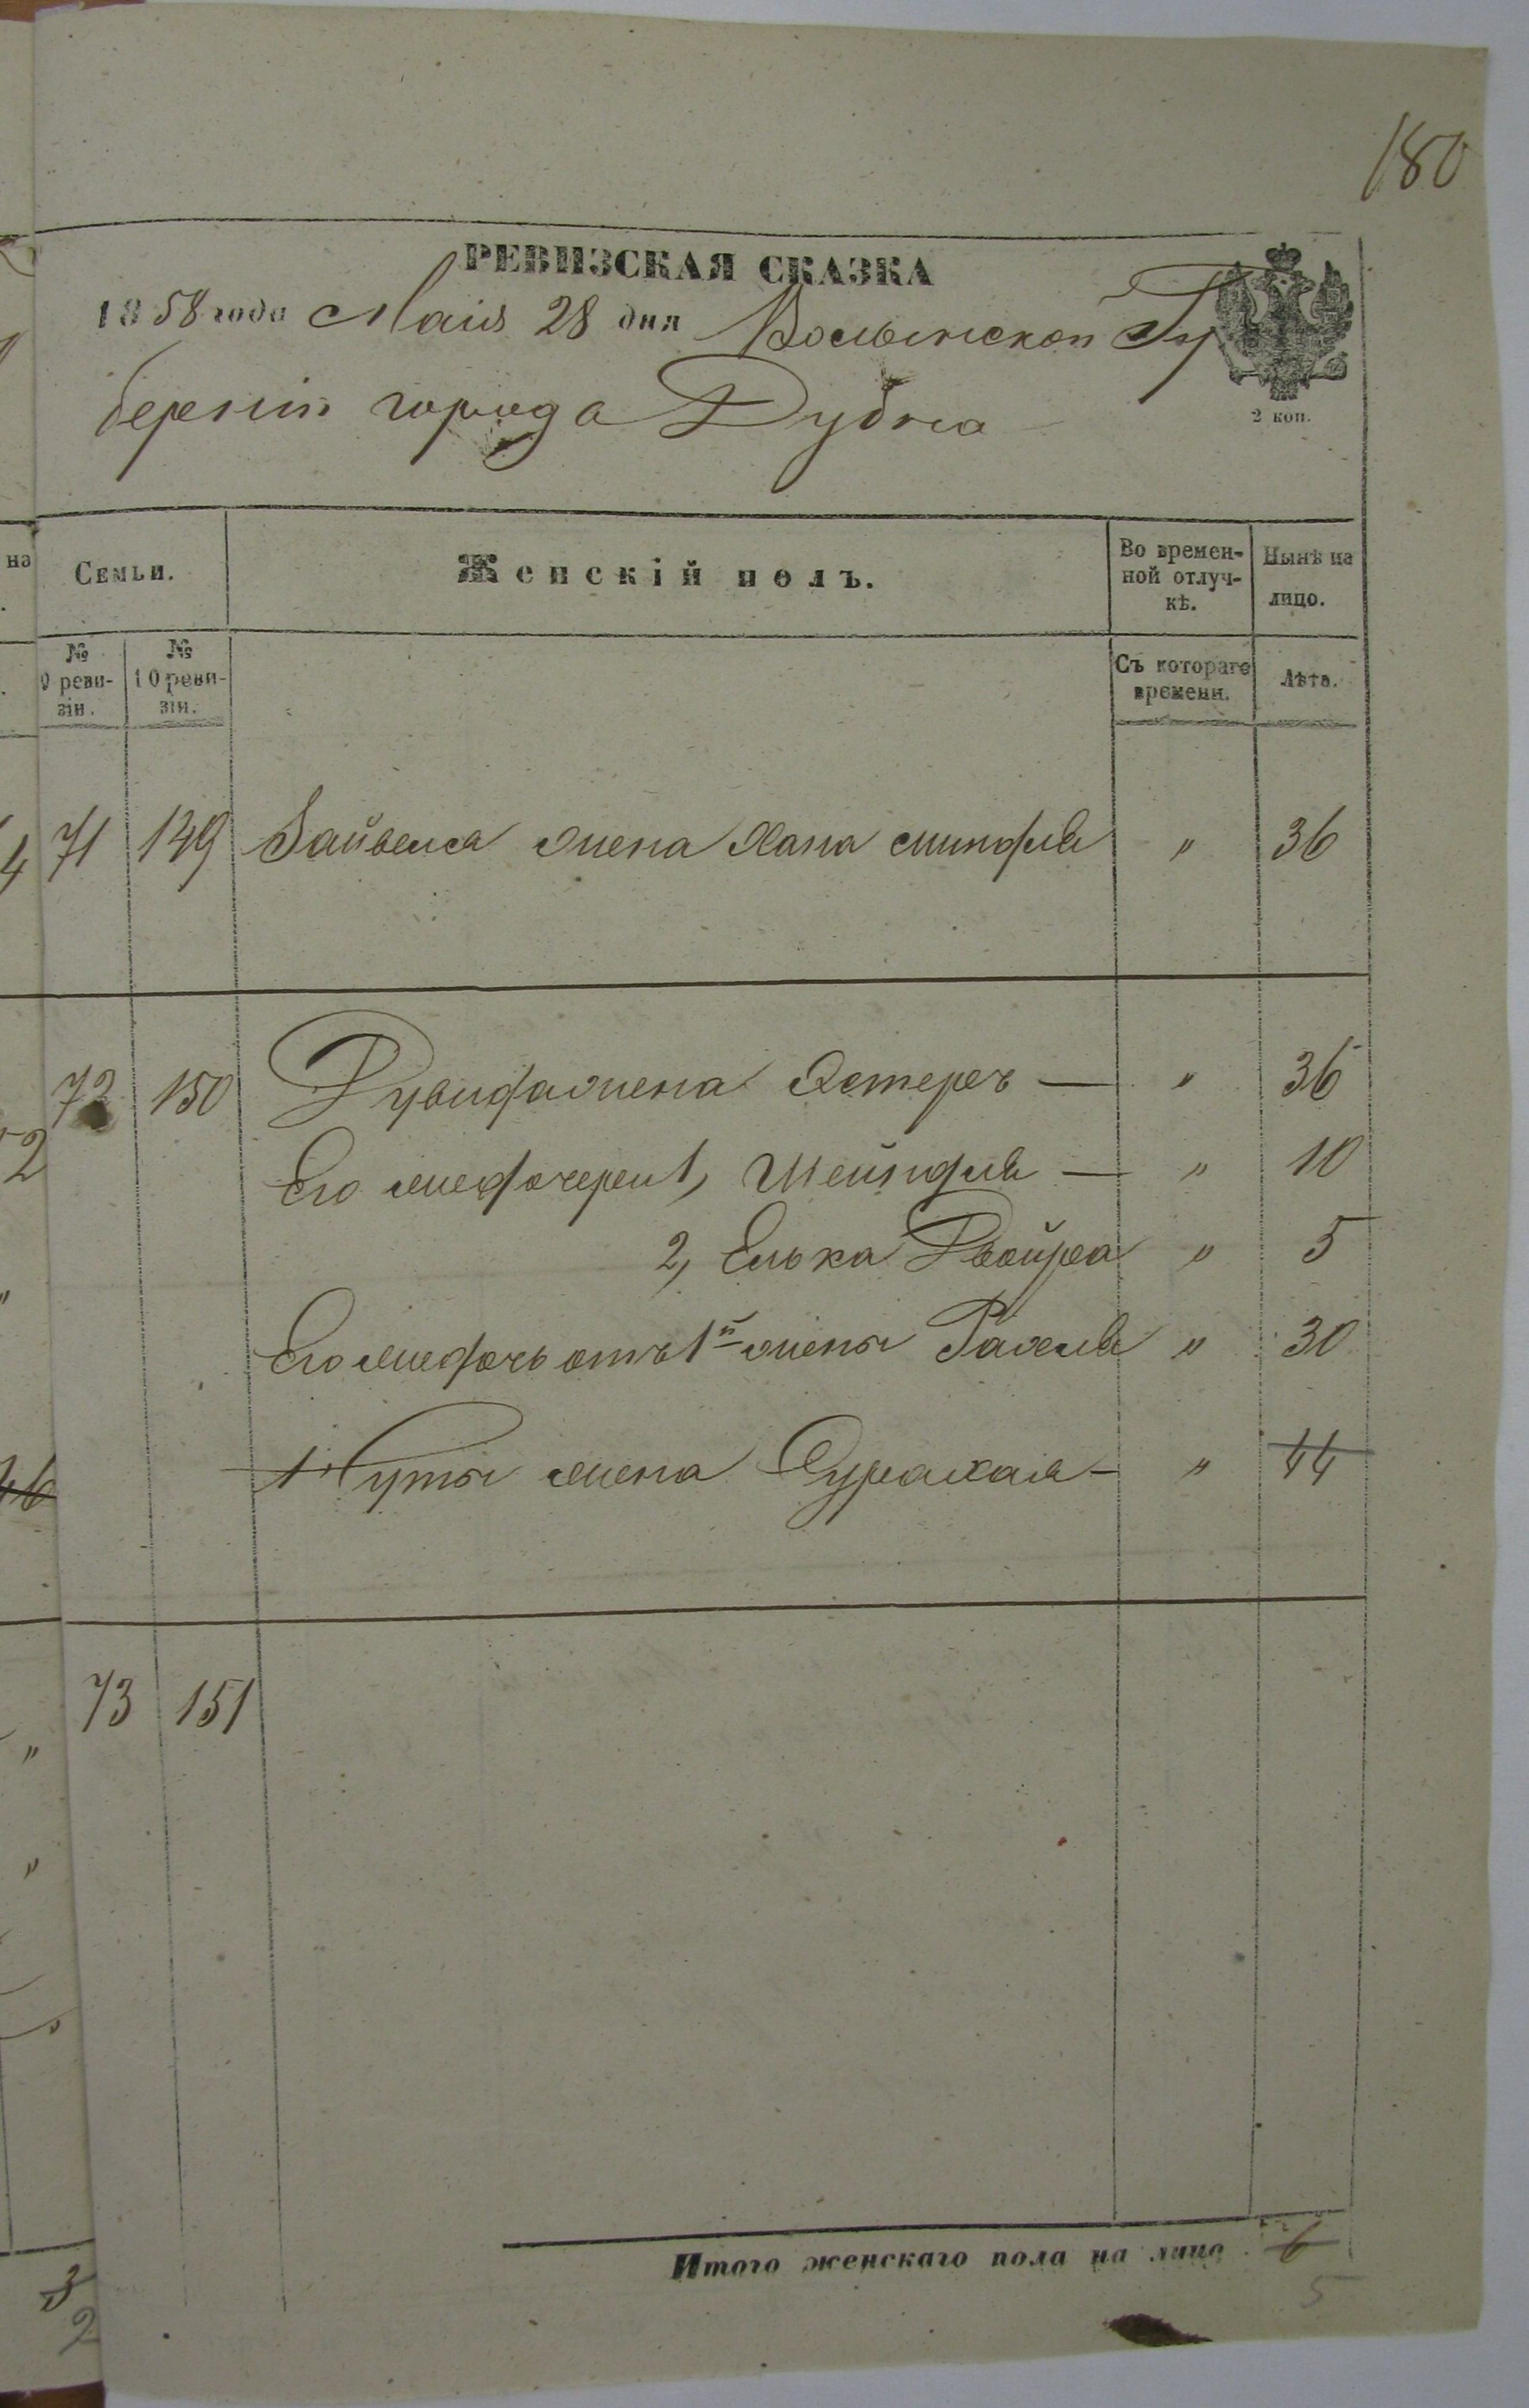 180
РЕВИЗСКАЯ СКАЗКА
1858 года Маія 28 дня Волынской Гу
берніи города Дубна
2 коп.
на
Семьи.
Женскій полъ.
Во времен-
ной отлуч-
кѣ.
Нынѣ на
лицо.
№
9 реви-
зіи.
№
10 реви-
зіи.
Съ котораго
времени.
Лѣта.
71 149 Зайвеля жена Хана Миндля " 36
72 150 Рувина жена Эстеръ — " 36
Его же дочери 1, Шейндля — " 10
2, Елька Двойра " 5
Его же дочь отъ 1й жены Рахля " 30
Нуты жена Сура Хая — " 44
73 151
Итого женскаго пола на лицо 6
5